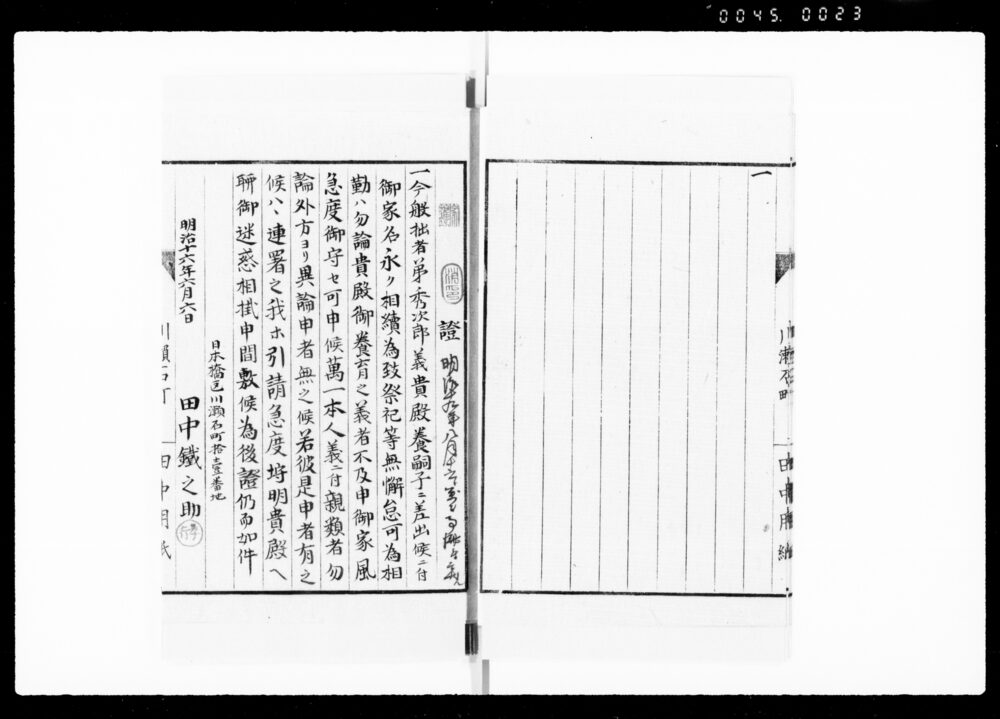 0045. 0023
一
川瀬石町
田中用紙
證
一今般拙者弟秀次郎義貴殿養嗣子ニ差出候ニ付
御家名永ク相續為致祭祀等無懈怠可為相
勤ハ勿論貴殿御養育之義者不及申御家風
急度御守セ可申候萬一本人義ニ付親類者勿
論外方ヨリ異論申者無之候若彼是申者有之
候ハヽ連署之我ホ引請急度埒明貴殿ヘ
聊御迷惑相掛申間敷候為後證仍而如件
日本橋區川瀬石町拾壹番地
明治十六年六月六日
田中鐵之助
川瀬石町
田中用紙